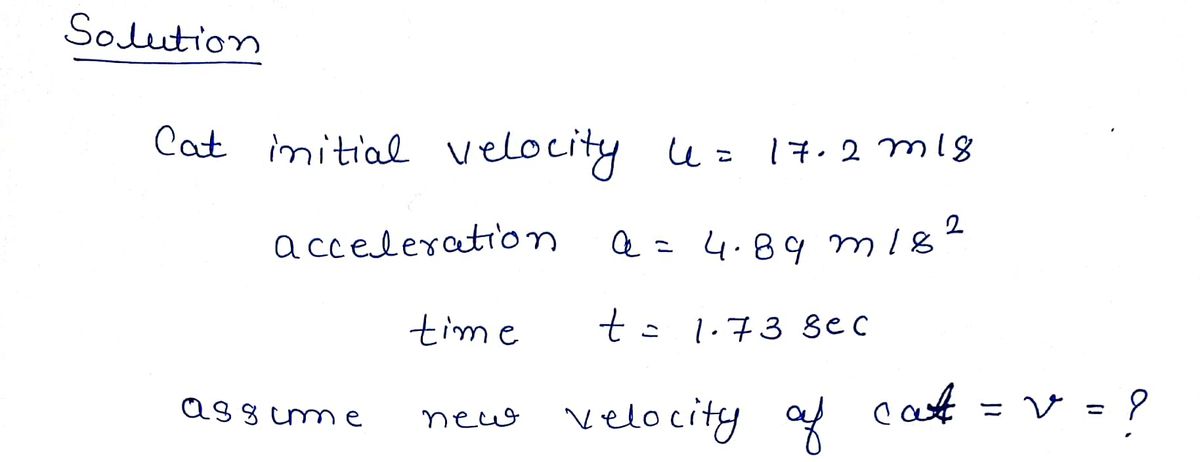 Solution
Cat initial velocity u = 17.2 m/s
acceleration a = 4.89 m/s²
time t = 1.73 sec
assume new velocity of cat = v = ?